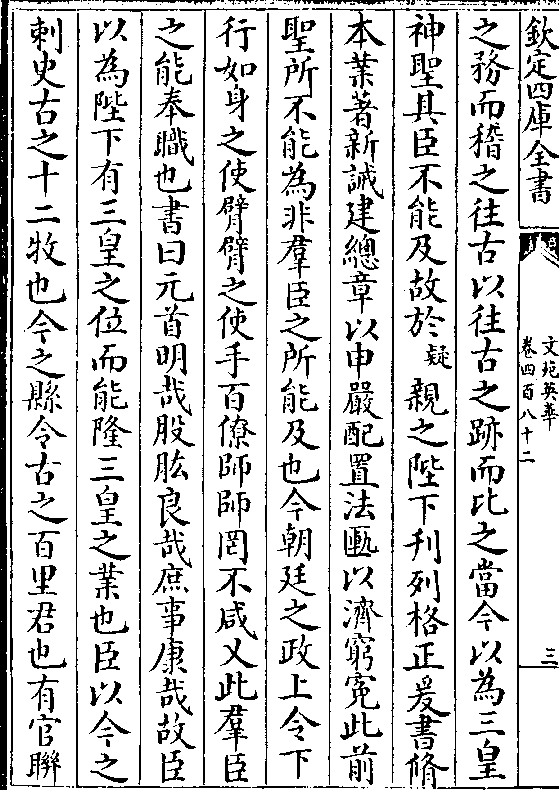 欽定四庫全書
文苑英華
卷四百八十二
三
之務而稽之往古以往古之跡而比之當今以為三皇
神聖其臣不能及故於疑親之陛下刋列格正爰書脩
本業著新誡建總章以申嚴配置法匭以濟窮寃此前
聖所不能為非羣臣之所能及也今朝廷之政上令下
行如身之使臂臂之使手百僚師師罔不咸乂此羣臣
之能奉職也書曰元首明哉股肱良哉庶事康哉故臣
以為陛下有三皇之位而能隆三皇之業也臣以今之
刺史古之十二牧也今之縣令古之百里君也有官聨